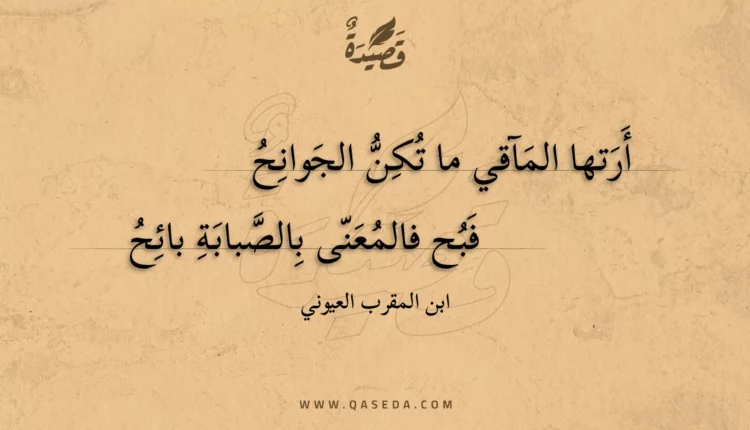 قَصِيْدَةٌ
أَرَتها المَآقي ما تُكِنُّ الجَوانِحُ
فَبُح فالمُعَنّى بِالصَّبابَةِ بائِحُ
ابن المقرب العيوني
WWW.QASEDA.COM